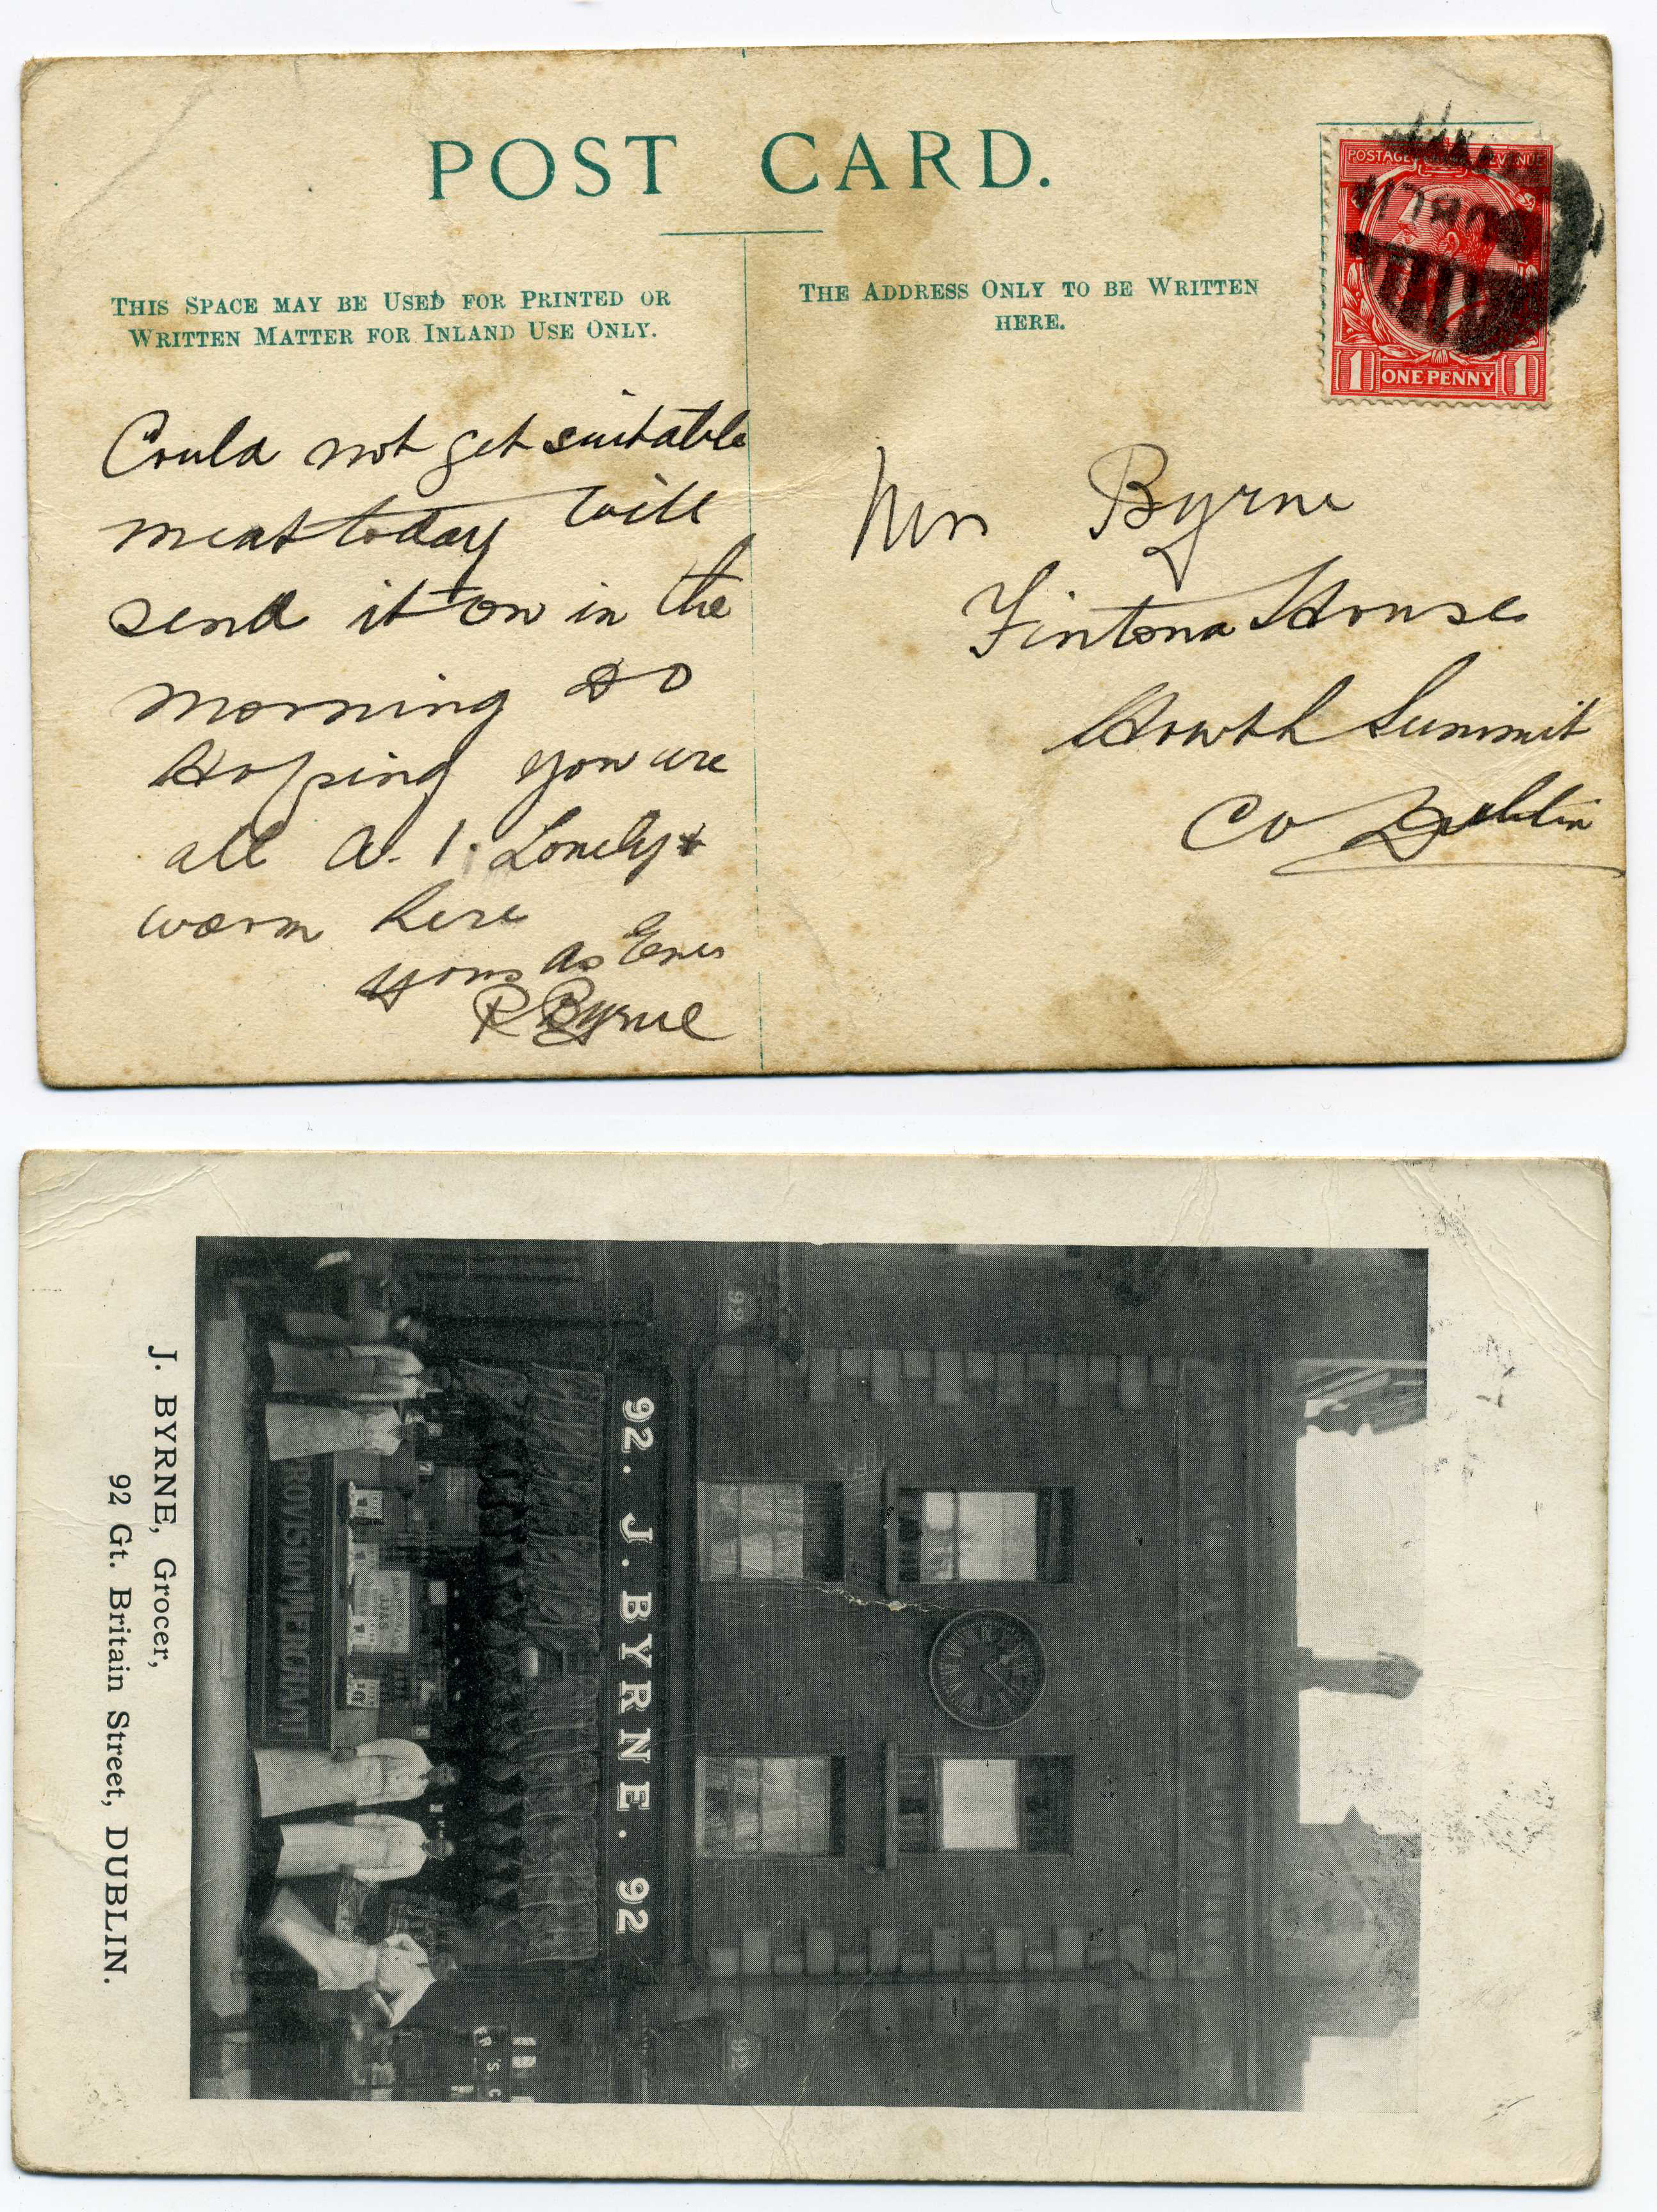 POST CARD.
THIS SPACE MAY BE USED FOR PRINTED OR
WRITTEN MATTER FOR INLAND USE ONLY.
THE ADDRESS ONLY TO BE WRITTEN
HERE.
POSTAGE REVENUE
1 ONE PENNY 1
Could not get suitable
meat today will
send it on in the
morning so
Hoping you are
all A. 1. Lonely &
warm here
yours as Ever
R Byrne
Mrs Byrne
Fintona House
Howth Summit
Co Dublin
92
92. J. BYRNE. 92
PROVISION MERCHANT
92
J. BYRNE, Grocer,
92 Gt. Britain Street, DUBLIN.